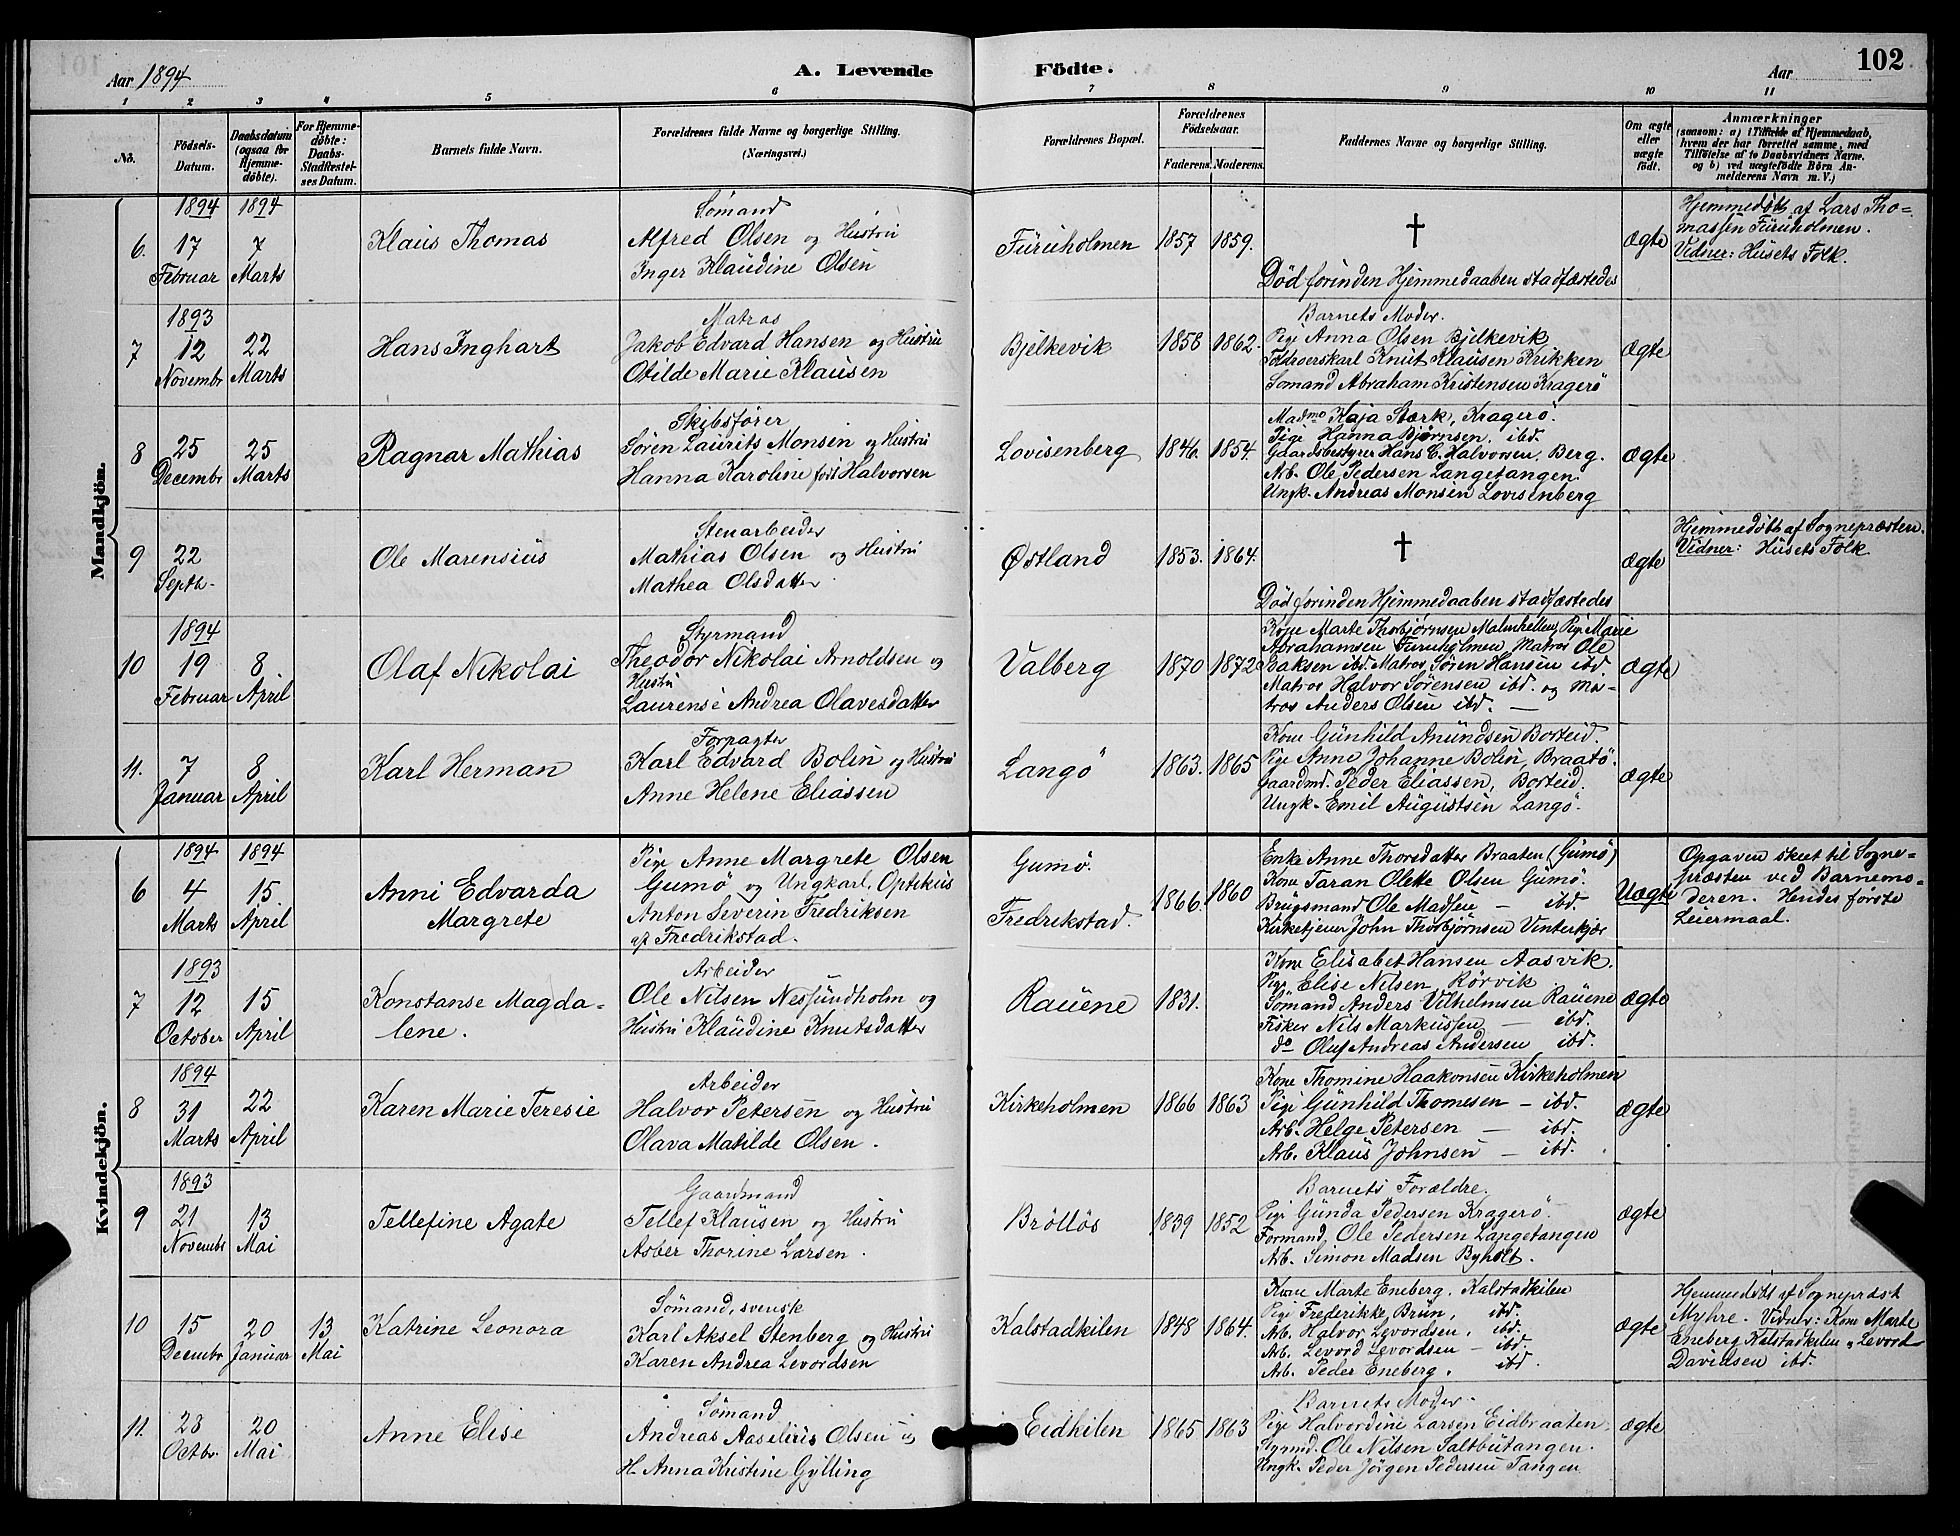 Aar 1894
A. Levende
Födte.
Aar
102
1 2 3 4 5 6 7 8 9 10 11
No.
Födsels-Datum.
Daabsdatum (ogsaa for Hjemme-döbte).
For Hjemme-döbte: Daabs-Stadfæstelses Datum.
Barnets fulde Navn.
Forældrenes fulde Navne og borgerlige Stilling.
(Næringsvei.)
Forældrenes Bopæl.
Forældrenes Födselsaar.
Faderens. Moderens.
Faddernes Navne og borgerlige Stilling.
Om ægte eller uægte født.
Anmærkninger
(saasom: a) i Tilfælde af Hjemmedaab,
hvem der har forrettet samme, med
Tilföielse af to Daabsvidners Navne,
og b) ved uægtefödte Börn An-
melderens Navn m. V.)
Mandkjön.
6. 1894 17 Februar
1894 7 Marts
Klaus Thomas
Sömand
Alfred Olsen og Hustru
Inger Klaudine Olsen
Furuholmen 1857 1859.
†
Död forinden Hjemmedaaben stadfæstedes
Ægte
Hjemmedöbt af Lars Tho-
massen Furuholmen.
Vidner: Husets Folk.
7 1893 12 Novembr
22 Marts
Hans Inghart
Matros
Jakob Edvard Hansen og Hustru
Otilde Marie Klausen
Bjelkevik 1858 1862.
Barnets Moder.
Pige Anna Olsen Bjelkevik
Knut Klausen Krikken
Sömand Abraham Kristensen Kragerö
Ægte
8 25 Decembr
25 Marts
Ragnar Mathias
Skibsförer
Sören Laurits Monsen og Hustru
Hanna Karoline født Halvorsen
Lovisenberg 1846. 1854.
Madme Kaja Stærk, Kragerö.
Pige Hanna Bjørnsen. ibd.
Gaardsbestyrer Hans C. Halvorsen, Berg.
Arb. Ole Pedersen Langetangen
Ungk. Andreas Monsen Lovisenberg
Ægte
9 22 Septb.
Ole Marensius
Stenarbeider
Mathias Olsen og Hustru
Mathea Olsdatter.
Østland 1853. 1864.
†
Död forinden Hjemmedaaben stadfæstedes
Ægte
Hjemmedöbt af Sognepræsten.
Vidner: Husets Folk.
10 1894 19 Februar
8 April
Olaf Nikolai
Styrmand
Theodor Nikolai Arnoldsen og
Hustru
Laurense Andrea Olavesdatter
Valberg 1870 1872
Kone Marte Thorbjørnsen Malmhellen, Pige Marie
Abrahamsen Furuholmen Matros Ole
Isaksen ibd. Matros Sören Hansen ibd
Matros Halvor Sørensen ibd. og Ma-
tros Anders Olsen ibd. —
Ægte
11. 7 Januar
8 April
Karl Herman
Forpagter
Karl Edvard Bolin og Hustru
Anne Helene Eliassen
Langö 1863. 1865
Kone Gunhild Amundsen Borteid
Pige Anne Johanne Bolin, Braatö.
Gaardmd. Peder Eliassen, Borteid.
Ungk. Emil Augustsen Langö.
Ægte
Kvindekjön.
6 1894 4 Marts
1894 15 April
Anni Edvarda
Margrete
Pige Anne Margrete Olsen
Gumö og Ungkarl, Optikus
Anton Severin Fredriksen
af Fredrikstad.
Gumö.
Fredrikstad. 1866. 1860
Enke Anne Thorsdatter Braaten (Gumö)
Kone Taran Olette Olsen Gumö.
Brugsmand Ole Madsen — ibd.
Kirketjener John Thorbjørnsen Vinterkjær
Uægte
Opgaven skeet til Sogne-
præsten ved Barnemo-
deren. Hendes første
Leiermaal.
7 1893 12 October
15 April
Konstanse Magda-
lene.
Arbeider
Ole Nilsen Nesfundholm og
Hustru Klaudine Knutsdatter
Rauene 1831.
Kone Elisabet Hansen Aasvik.
Pige Elise Nilsen, Rörvik
Sømand Anders Vilhelmsen Rauene
Fisker Nils Markussen — ibd.
do Oluf Andreas Andersen ibd.
Ægte
8 1894 31 Marts
22 April
Karen Marie Teresie
Arbeider
Halvor Petersen og Hustru
Olava Matilde Olsen.
Kirkeholmen 1866 1863
Kone Thomine Haakonsen Kirkeholmen
Pige Gunhild Thomesen — ibd.
Arb. Helge Petersen — ibd.
Arb. Klaus Johnsen — ibd.
Ægte
9 1893 21 Novembr
13 Mai
Tellefine Agate
Gaardmand
Tellef Klausen og Hustru
Asber Thorine Larsen.
Bröllös 1839 1852
Barnets Forældre.
Pige Gunda Pedersen Kragerö.
Formand. Ole Pedersen Langetangen
Arb. Simon Madsen Byholt.
Ægte
10 15 Decembr
20 Januar
13 Mai
Katrine Leonora
Sömand, svensk
Karl Aksel Stenberg og Hustru
Karen Andrea Levordsen
Kalstadkilen 1848 1864.
Kone Marte Eneberg. Kalstadkilen
Pige Frederikke Brun, ibd.
Arb. Halvor Levordsen, ibd.
Arb. Levord Levordsen — ibd.
Arb. Peder Eneberg. ibd.
Ægte
Hjemmedöbt af Sognepræst
Myhre. Vidner: Kone Marte
Eneberg Kalstadkilen, Levord
Davidsen ibd.
11. 23 Octbr
20 Mai
Anne Elise
Sømand
Andreas Olsen og
H. Anna Kristine Gylling
Eidkilen 1865 1863
Barnets Moder.
Pige Halvordine Larsen Eidbraaten
Styrmd. Ole Nilsen Saltbutangen.
Ungk. Peder Jörgen Pedersen Tangen
Ægte